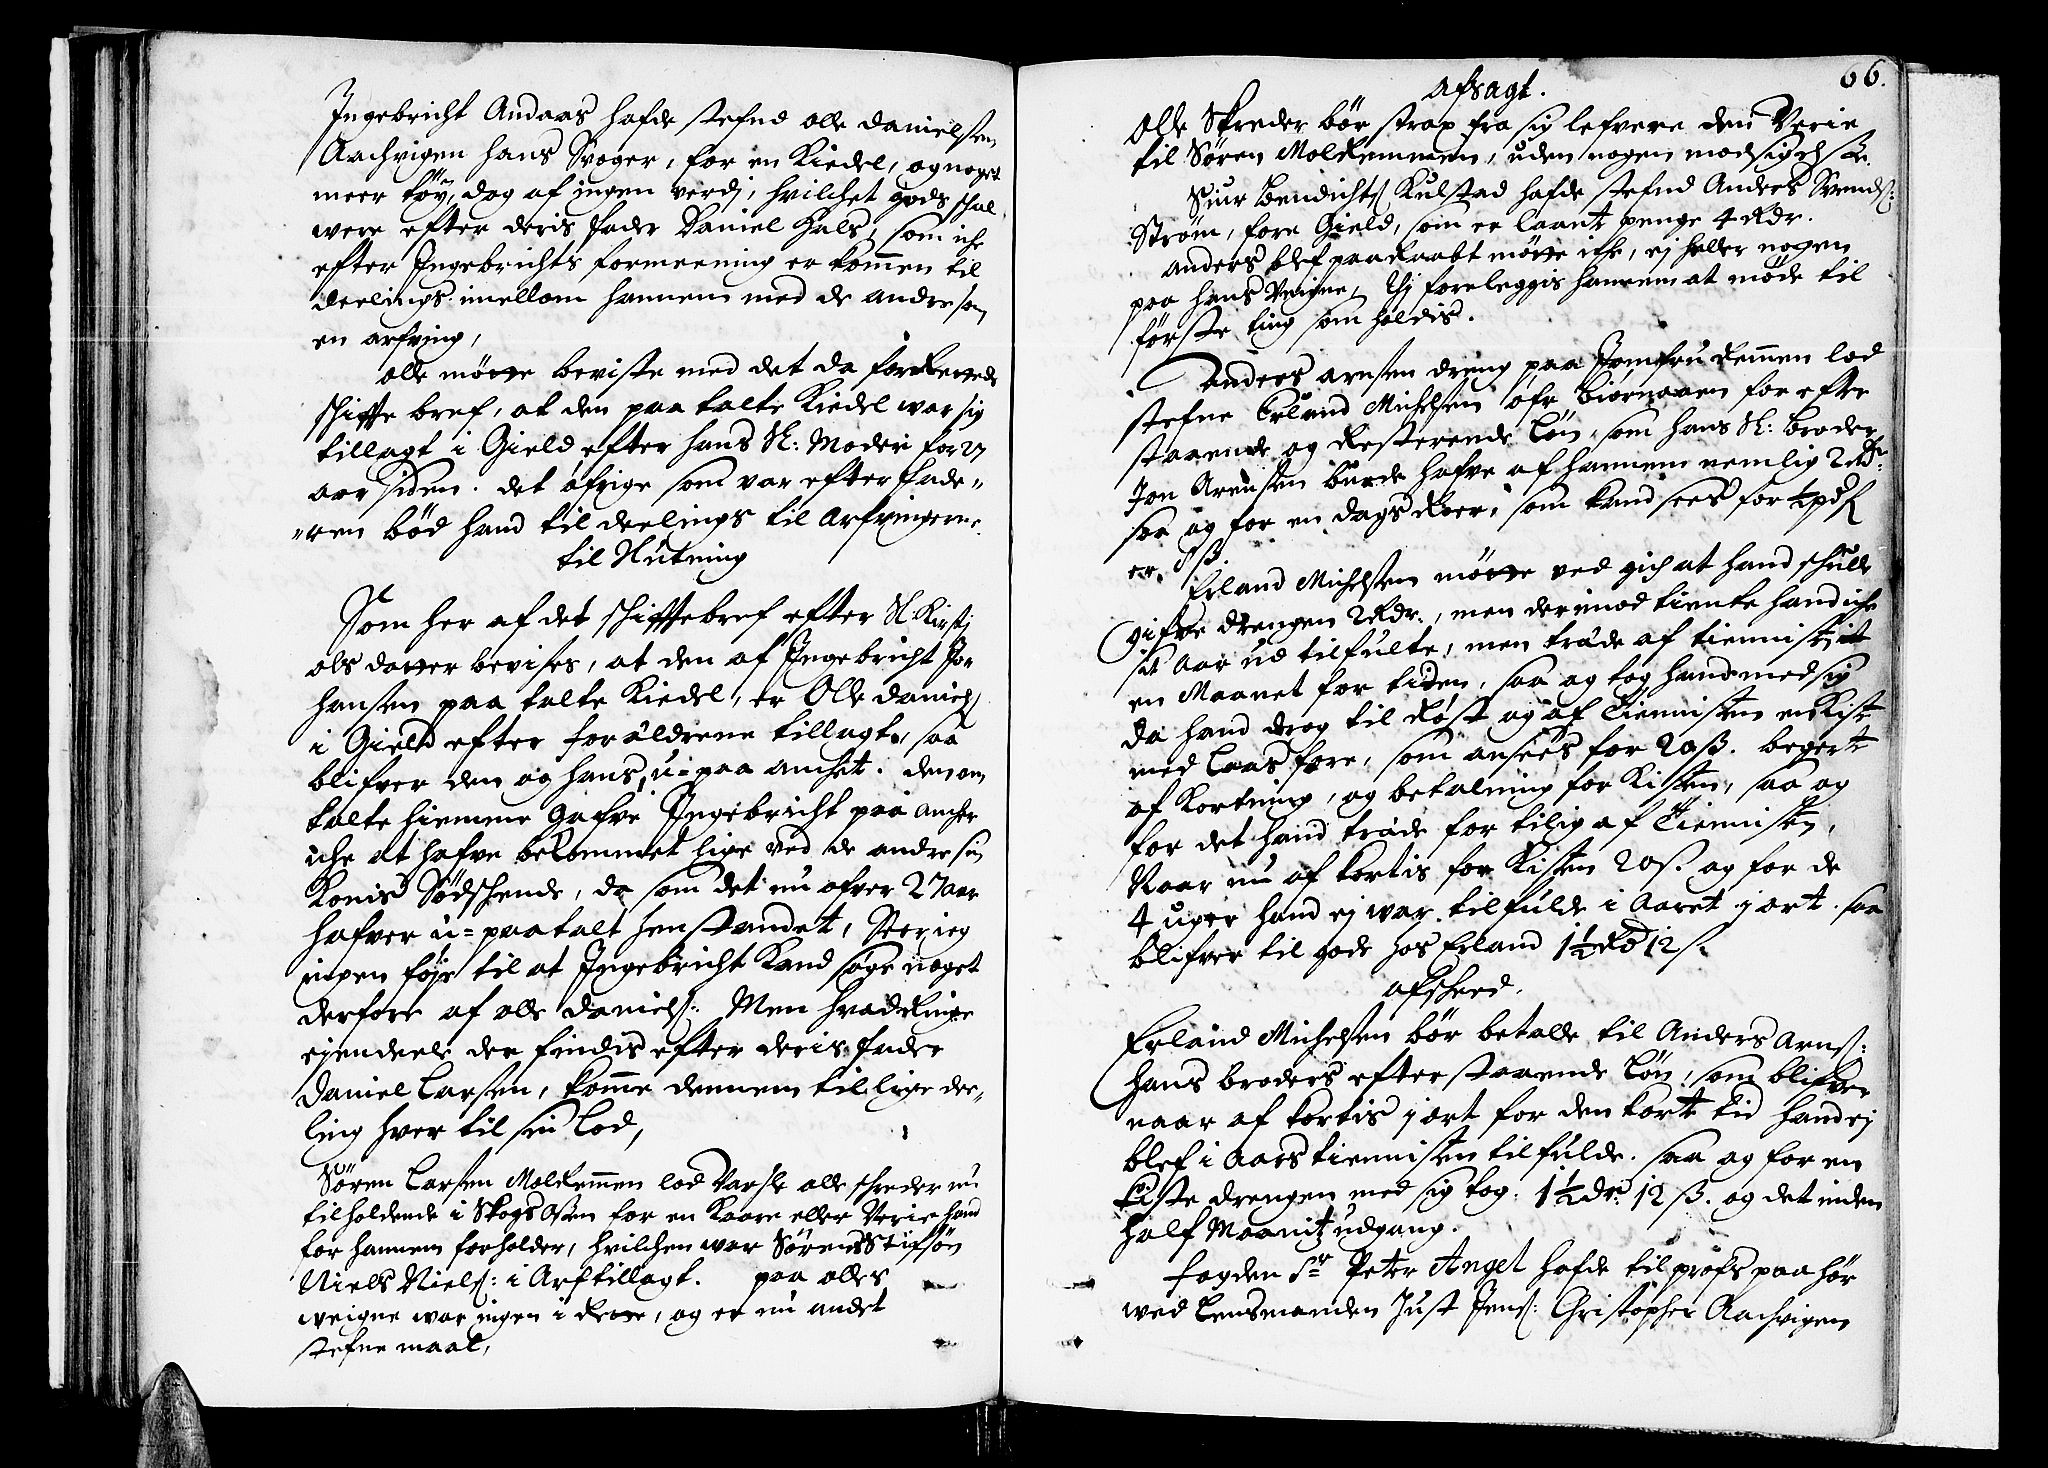 Ingebricht Andaas hafde stefnd olle danielsen
Aachvigen hans Svoger, for en Kiedel, og noget
meer töy, dog af ingen verdj, hvilchet gods schal
were efter deris fader Daniel Hals, som iche
efter Ingebrichts formeening er kommen til
deelings imellom hannem med de andre som
en arfving,
olle mötte beviste med det da forRettede
schiffte bref, at den paa talte Kiedel war sig
tillagt i Gield efter hans Sl: Moder for 27
aar siden. det öfrige som var efter fade-
"ren böd hand til deelings til Arfvingerne.
til Slutning
Som her af det schifftebref efter Sl: Kirstj
ols datter bevises, at den af Ingebricht Jo-
hansen paa talte Kiedel, er Olle daniels
i Gield efter forældrene tillagt, saa
blifver den og hans, u-paa anchet. den om
talte hiemme gafve Ingebricht paa ancher
iche at hafve bekommet lige ved de andre sin
Konis Södschende, da som det nu ofver 27 aar
hafver u-paatalt henstandet, Seer ieg
ingen föje til at Ingebricht Kand söge noget
derfore af olle daniels: Men hvad Ringe
ejendeele der findis efter deris fader
Daniel Larsen, komme dennem til lige dee-
ling hver til sin Lod,
Sören Larsen MoldRemmen lod Varsle olle schreder nu
tilholdende i Skogs Osen for en Kaare eller Verie hand
for hannem forholder, hvilchen war Sörens Stifsön
Niels Niels: i Arf tillagt. paa olles
weigne war ingen i Rette, og er nu andet
stefne maal,
66.
Afsagt.
Olle Skreder bör strax fra sig lefvere den Verie
til Sören MoldRemmen, uden nogen modsigelse.
Siur Bendichts Kulstad hafde stefnd Anders Svends:
Ström, fore Gield, som er laant penge 4 Rdr.
anders blef paaRaabt mötte iche, ej heller nogen
paa hans Veigne, Thj foreleggis hannem at möde til
förste ting som holdis.
Anders arnsen dreng paa JomfruRemmen lod
stefne Erland Michelsen öfr Biörnaaen for efter
staaende og Resterende Lön, som hans Sl: broder
Jon Arensen burde hafve af hannem nemlig 2 Rdr:
saa og for en dags Roer, som kand sees for
er. 8 ß.
Erland Michelsen mötte ved gich at hand schulle
gifve drengen 2 Rdr., men derimod tiente hand iche
sit Aar ud tilfulte, men traade af tiennisten
en Maanet for tiden, saa og tog hand med sig
da hand drog til Röst og af Tiennisten en Kiste
med Laas fore, som ansees for 20 ß. begerte
af Kortning, og betalning for Kisten, saa og
for det hand traade for tilig af Tiennisten,
Naar nu af kortis for Kisten 20 ß. og for de
4 uger hand ej war tilfulde i Aaret jort. saa
blifver til gode hos Erland 1½ Rd 12 ß.
Afscheed.
Erland Michelsen bör betalle til Anders Arns:
hans broders efter staaende Lön, som blifver
naar af kortis jort for den kort tid hand ej
blef i aars tiennisten tilfulde. saa og for en
kiste drengen med sig tog: 1½ dr: 12 ß. og det inden
half Maanitz udgang.
fogden Sr Peter Angel hafde til pröfs paa hör
wed Lensmanden Just Jens: Christopher Aachvigen